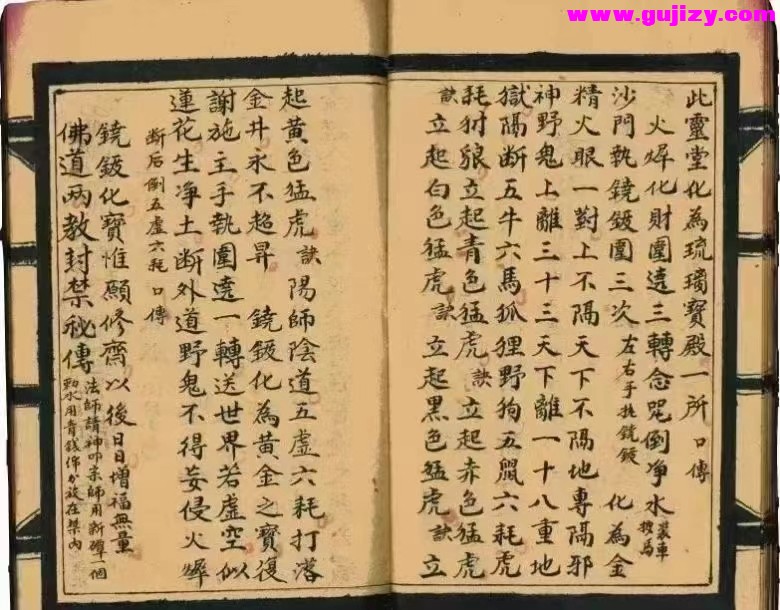 www.gujizy.com
此靈堂化為琉璃寶殿一所 口傳
火墀化財圍遶三轉念咒倒净水 裝車攬馬
沙門執鐃鈸圍三次 左右手执鐃鈸 化為金
精火眼一對上不隔天下不隔地專隔邪
神野鬼上離三十三天下離一十八重地
獄隔断五牛六馬狐狸野狗五䑕六耗虎
耗豺狼立起青色猛虎 訣 立起赤色猛虎
訣 立起白色猛虎 訣 立起黑色猛虎 訣 立
起黄色猛虎 訣 陽師陰道五虚六耗打落
金井永不超昇 鐃鈸化為黄金之寶復
謝施主手執圍遶一轉送世界若虚空似
蓮花生净土断外道野鬼不得妄侵火墀
断后倒五虚六耗 口傳
鐃鈸化寶惟願修齋以後日日增福無量
佛道两教封禁秘傳 法師請神叩杀師用新罈一個
勅水用青錢佈於放在禁内